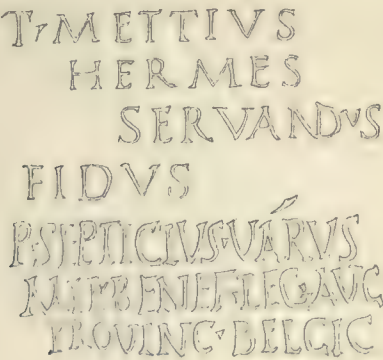 T·METTIVS
HERMES
SERVANDVS
FIDVS
P·SEPTICIVS·VÁRVS
MIL·BENEF·LEG·AVG
PROVINC·BELGIC